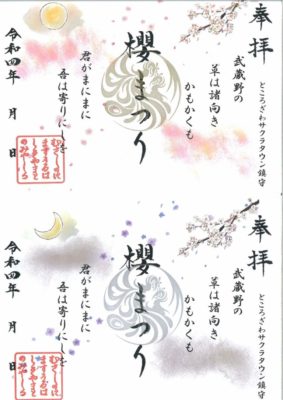 奉拝
ところざわサクラタウン鎮守
武蔵野の
草は諸向き
かもかくも
櫻まつり
君がまにまに
吾は寄りにしを
令和四年 月 日
奉拝
ところざわサクラタウン鎮守
武蔵野の
草は諸向き
かもかくも
櫻まつり
君がまにまに
吾は寄りにしを
令和四年 月 日